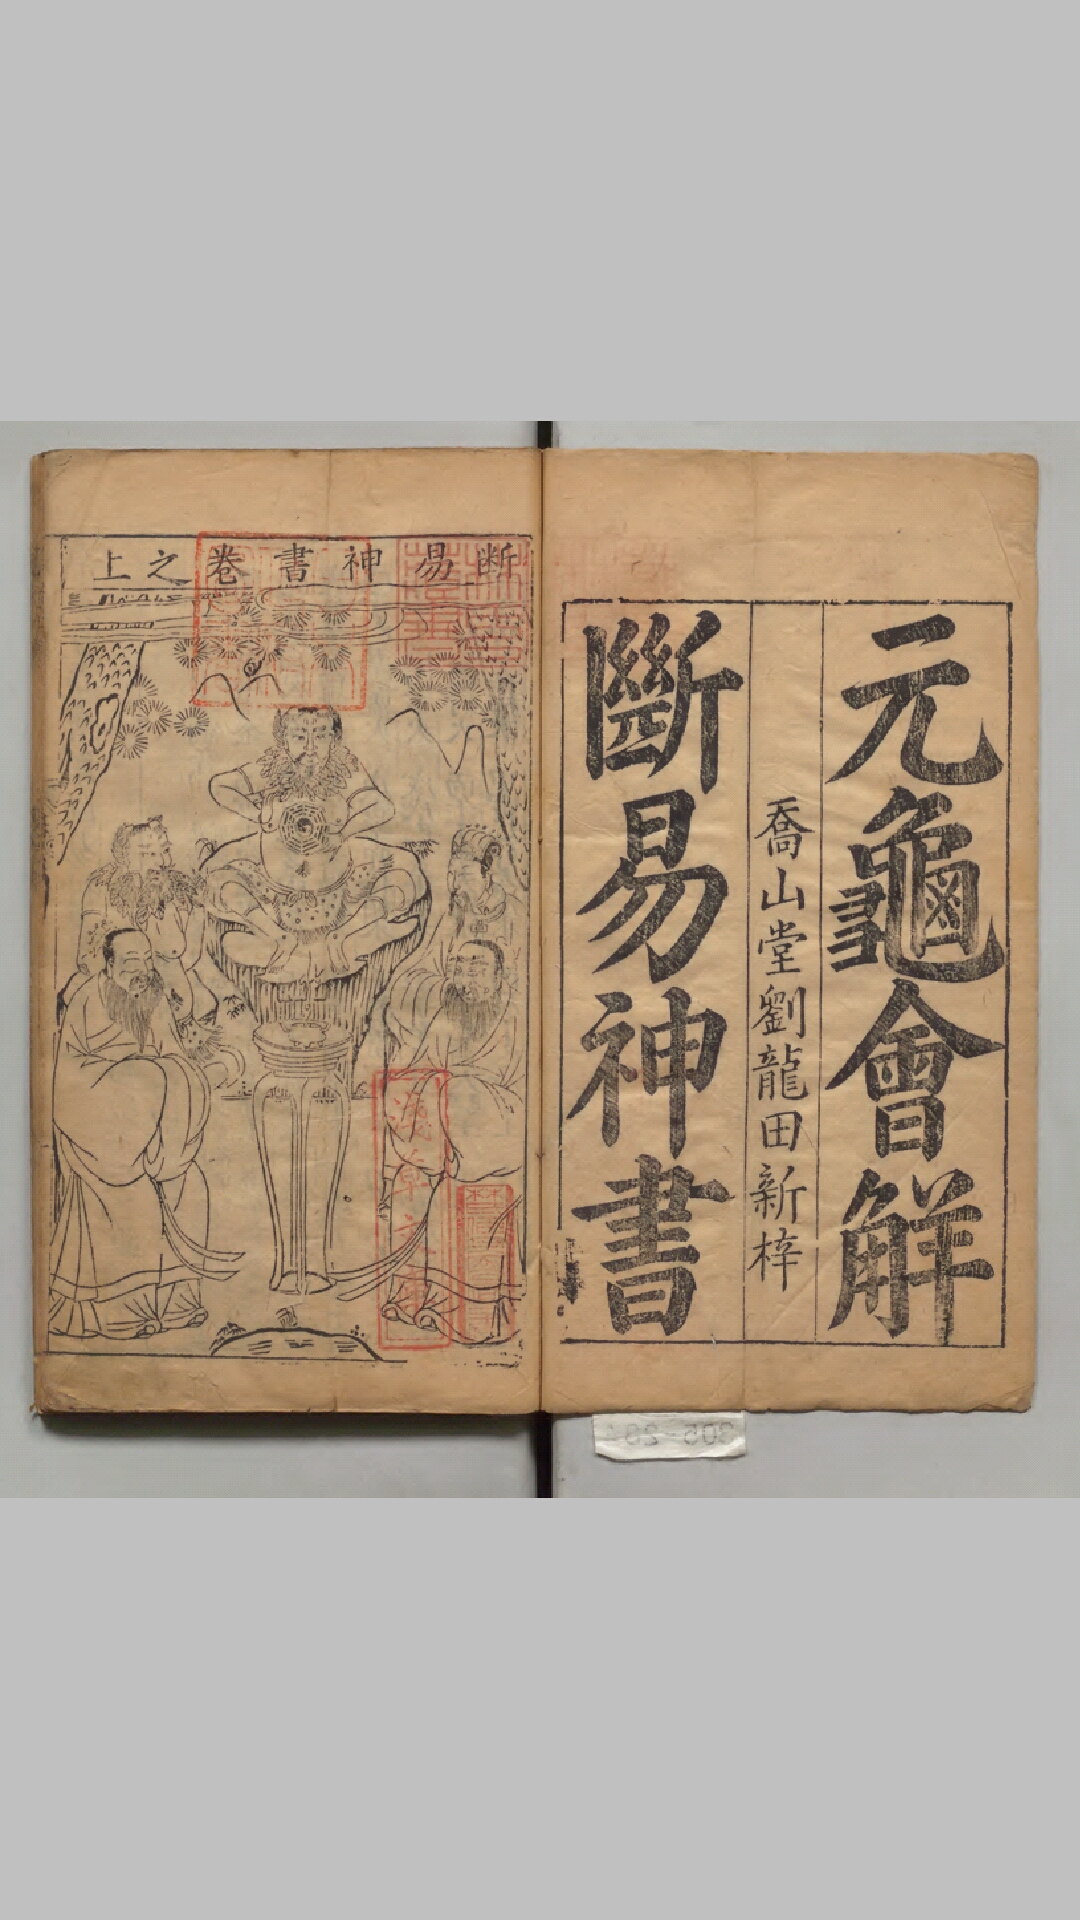 元龜會解
喬山堂劉龍田新梓
斷易神書
断易神書卷之上
淺草文庫